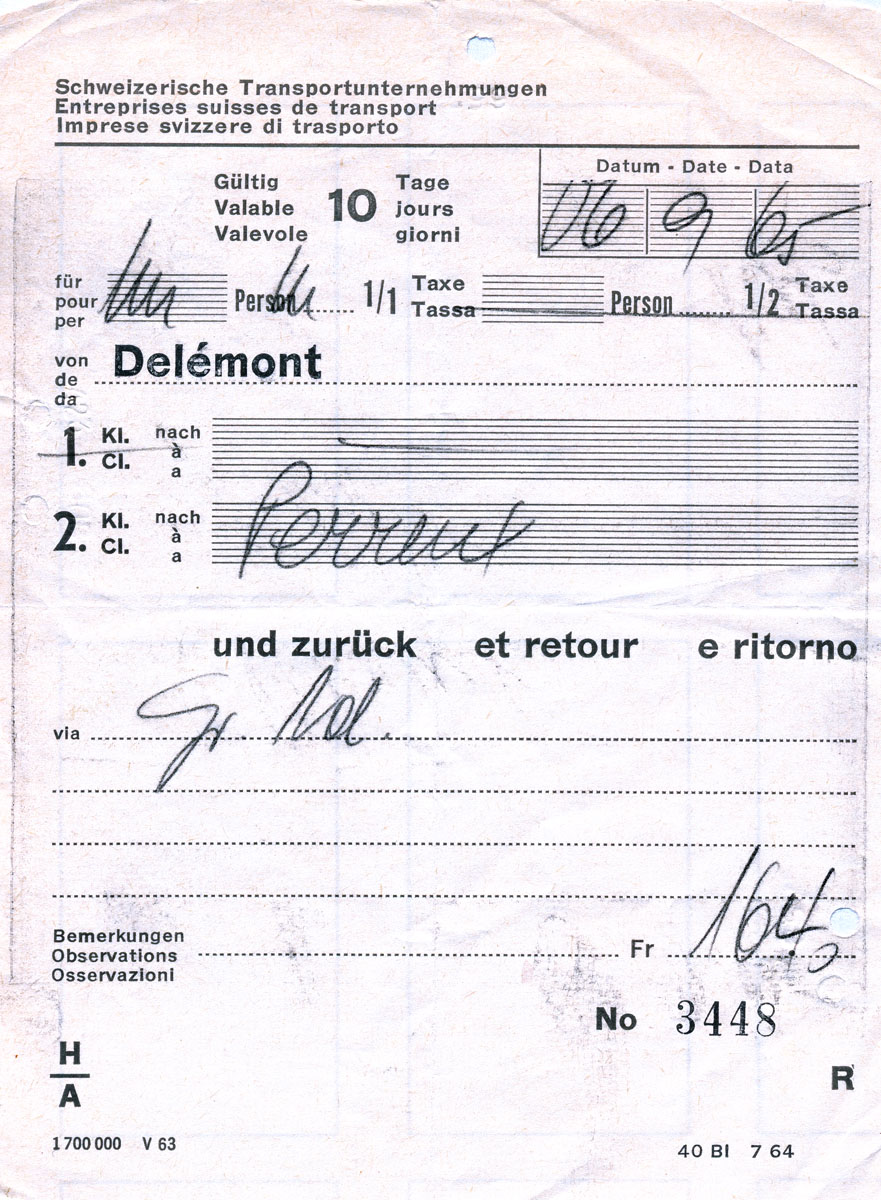 Schweizerische Transportunternehmungen
Entreprises suisses de transport
Imprese svizzere di trasporto
Datum - Date - Data
Gültig 10 Tage
Valable jours
Valevole giorni
06 9 65
für
pour
per
Person 1/1 Taxe Tassa Person 1/2 Taxe Tassa
von
de
da
Delémont
1. Kl. Cl. nach à a
2. Kl. Cl. nach à a Perreux
und zurück et retour e ritorno
via Gr.
Bemerkungen
Observations
Osservazioni
Fr 16.40
No 3448
H
A
R
1700000 V 63
40 BI 7 64